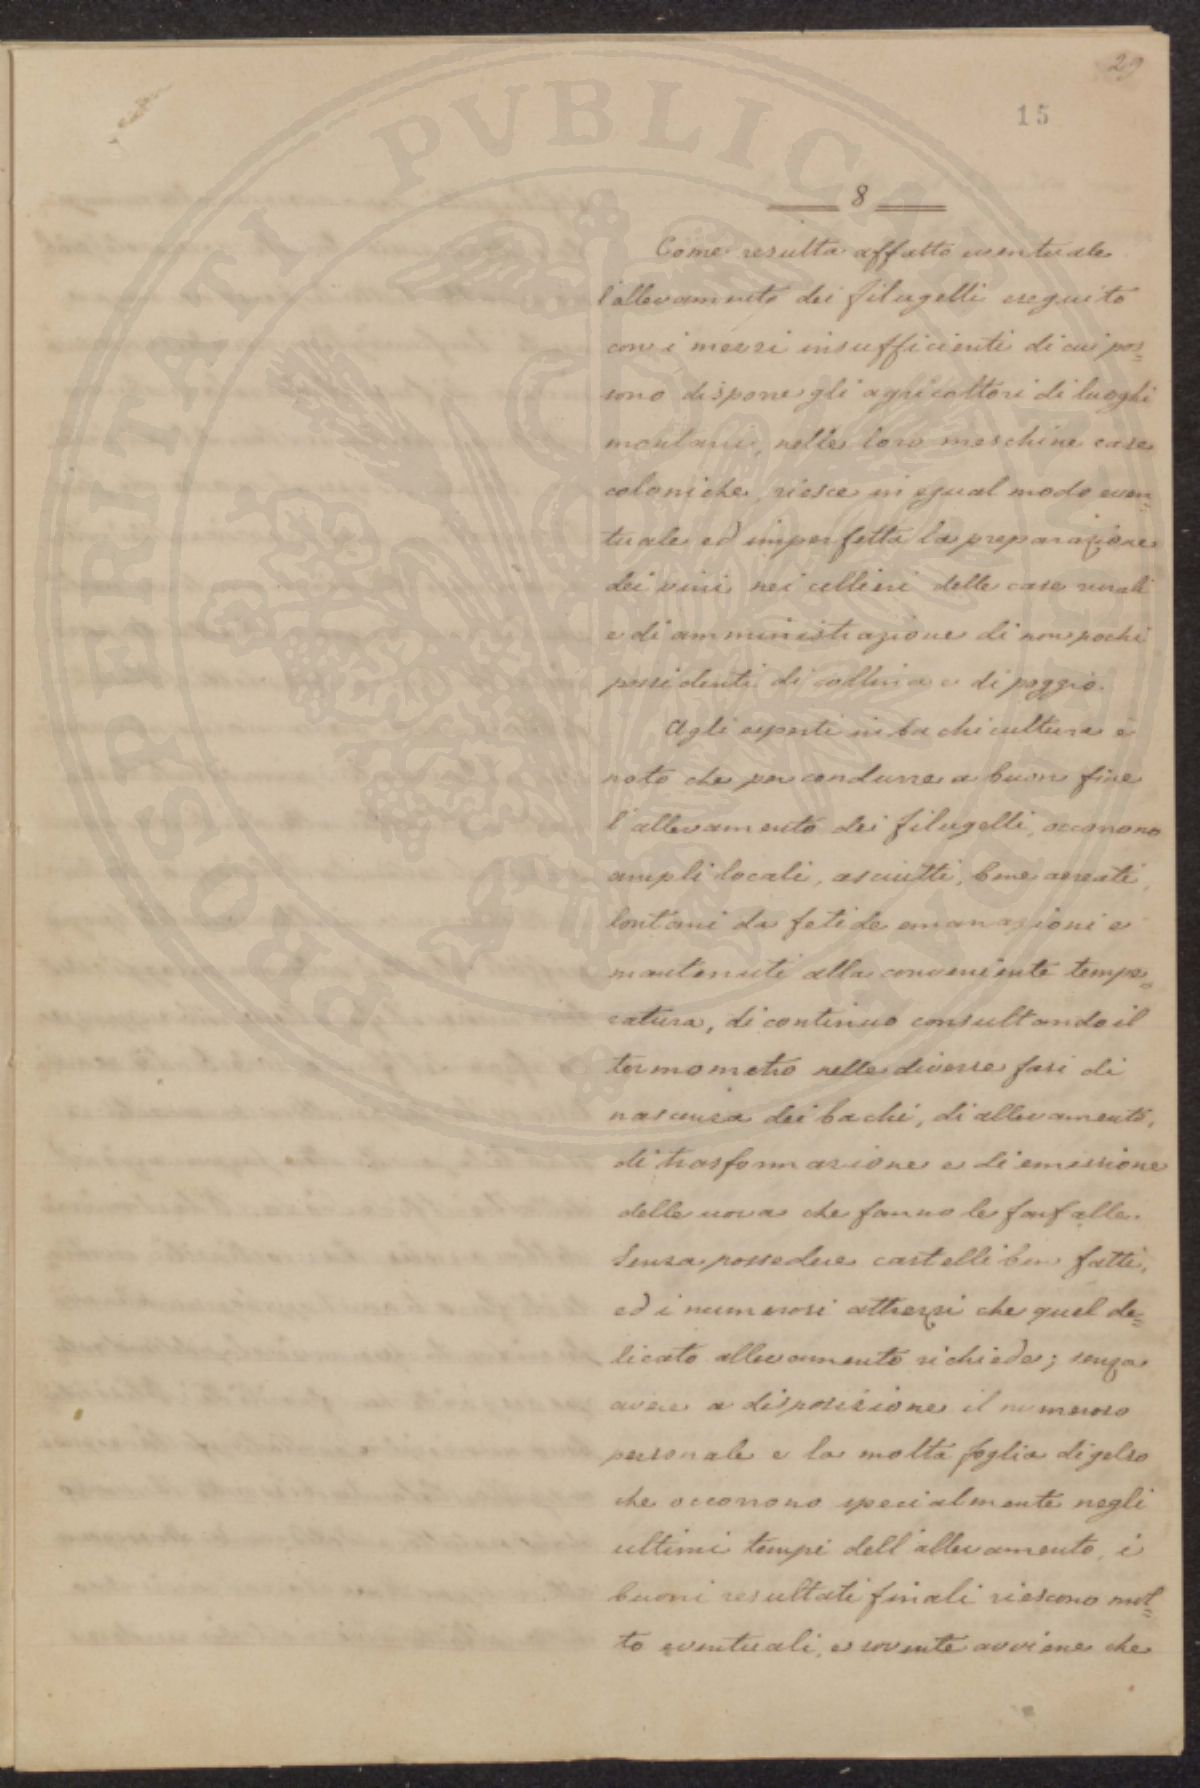 29
15
8
Come resulta affatto eventuale
l'allevamento dei filugelli eseguito
con i mezzi insufficienti di cui pos=
sono disporre gli agricoltori di luoghi
montani, nelle loro meschine case
coloniche, riesce in egual modo even=
tuale ed imperfetta la preparazione
dei vini nei cellieri delle case rurali
e di amministrazione di non pochi
possidenti di collina e di poggio.
Agli esperti in bachicultura è
noto che per condurre a buon fine
l'allevamento dei filugelli, occorrono
ampli locali, asciutti, bene aereati,
lontani da fetide emanazioni e
mantenuti alla conveniente tempe=
ratura, di continuo consultando il
termometro nelle diverse fasi di
nascenza dei bachi, di allevamento,
di trasformazione e di emissione
delle uova che fanno le farfalle.
Senza possedere castelli ben fatti,
ed i numerosi attrezzi che quel de=
licato allevamento richiede; senza
avere a disposizione il numeroso
personale e la molta foglia di gelso
che occorrono specialmente negli
ultimi tempi dell'allevamento, i
buoni resultati finali riescono mol=
to eventuali, e sovente avviene che
PROSPERITATI PUBLICAE AUGENDAE